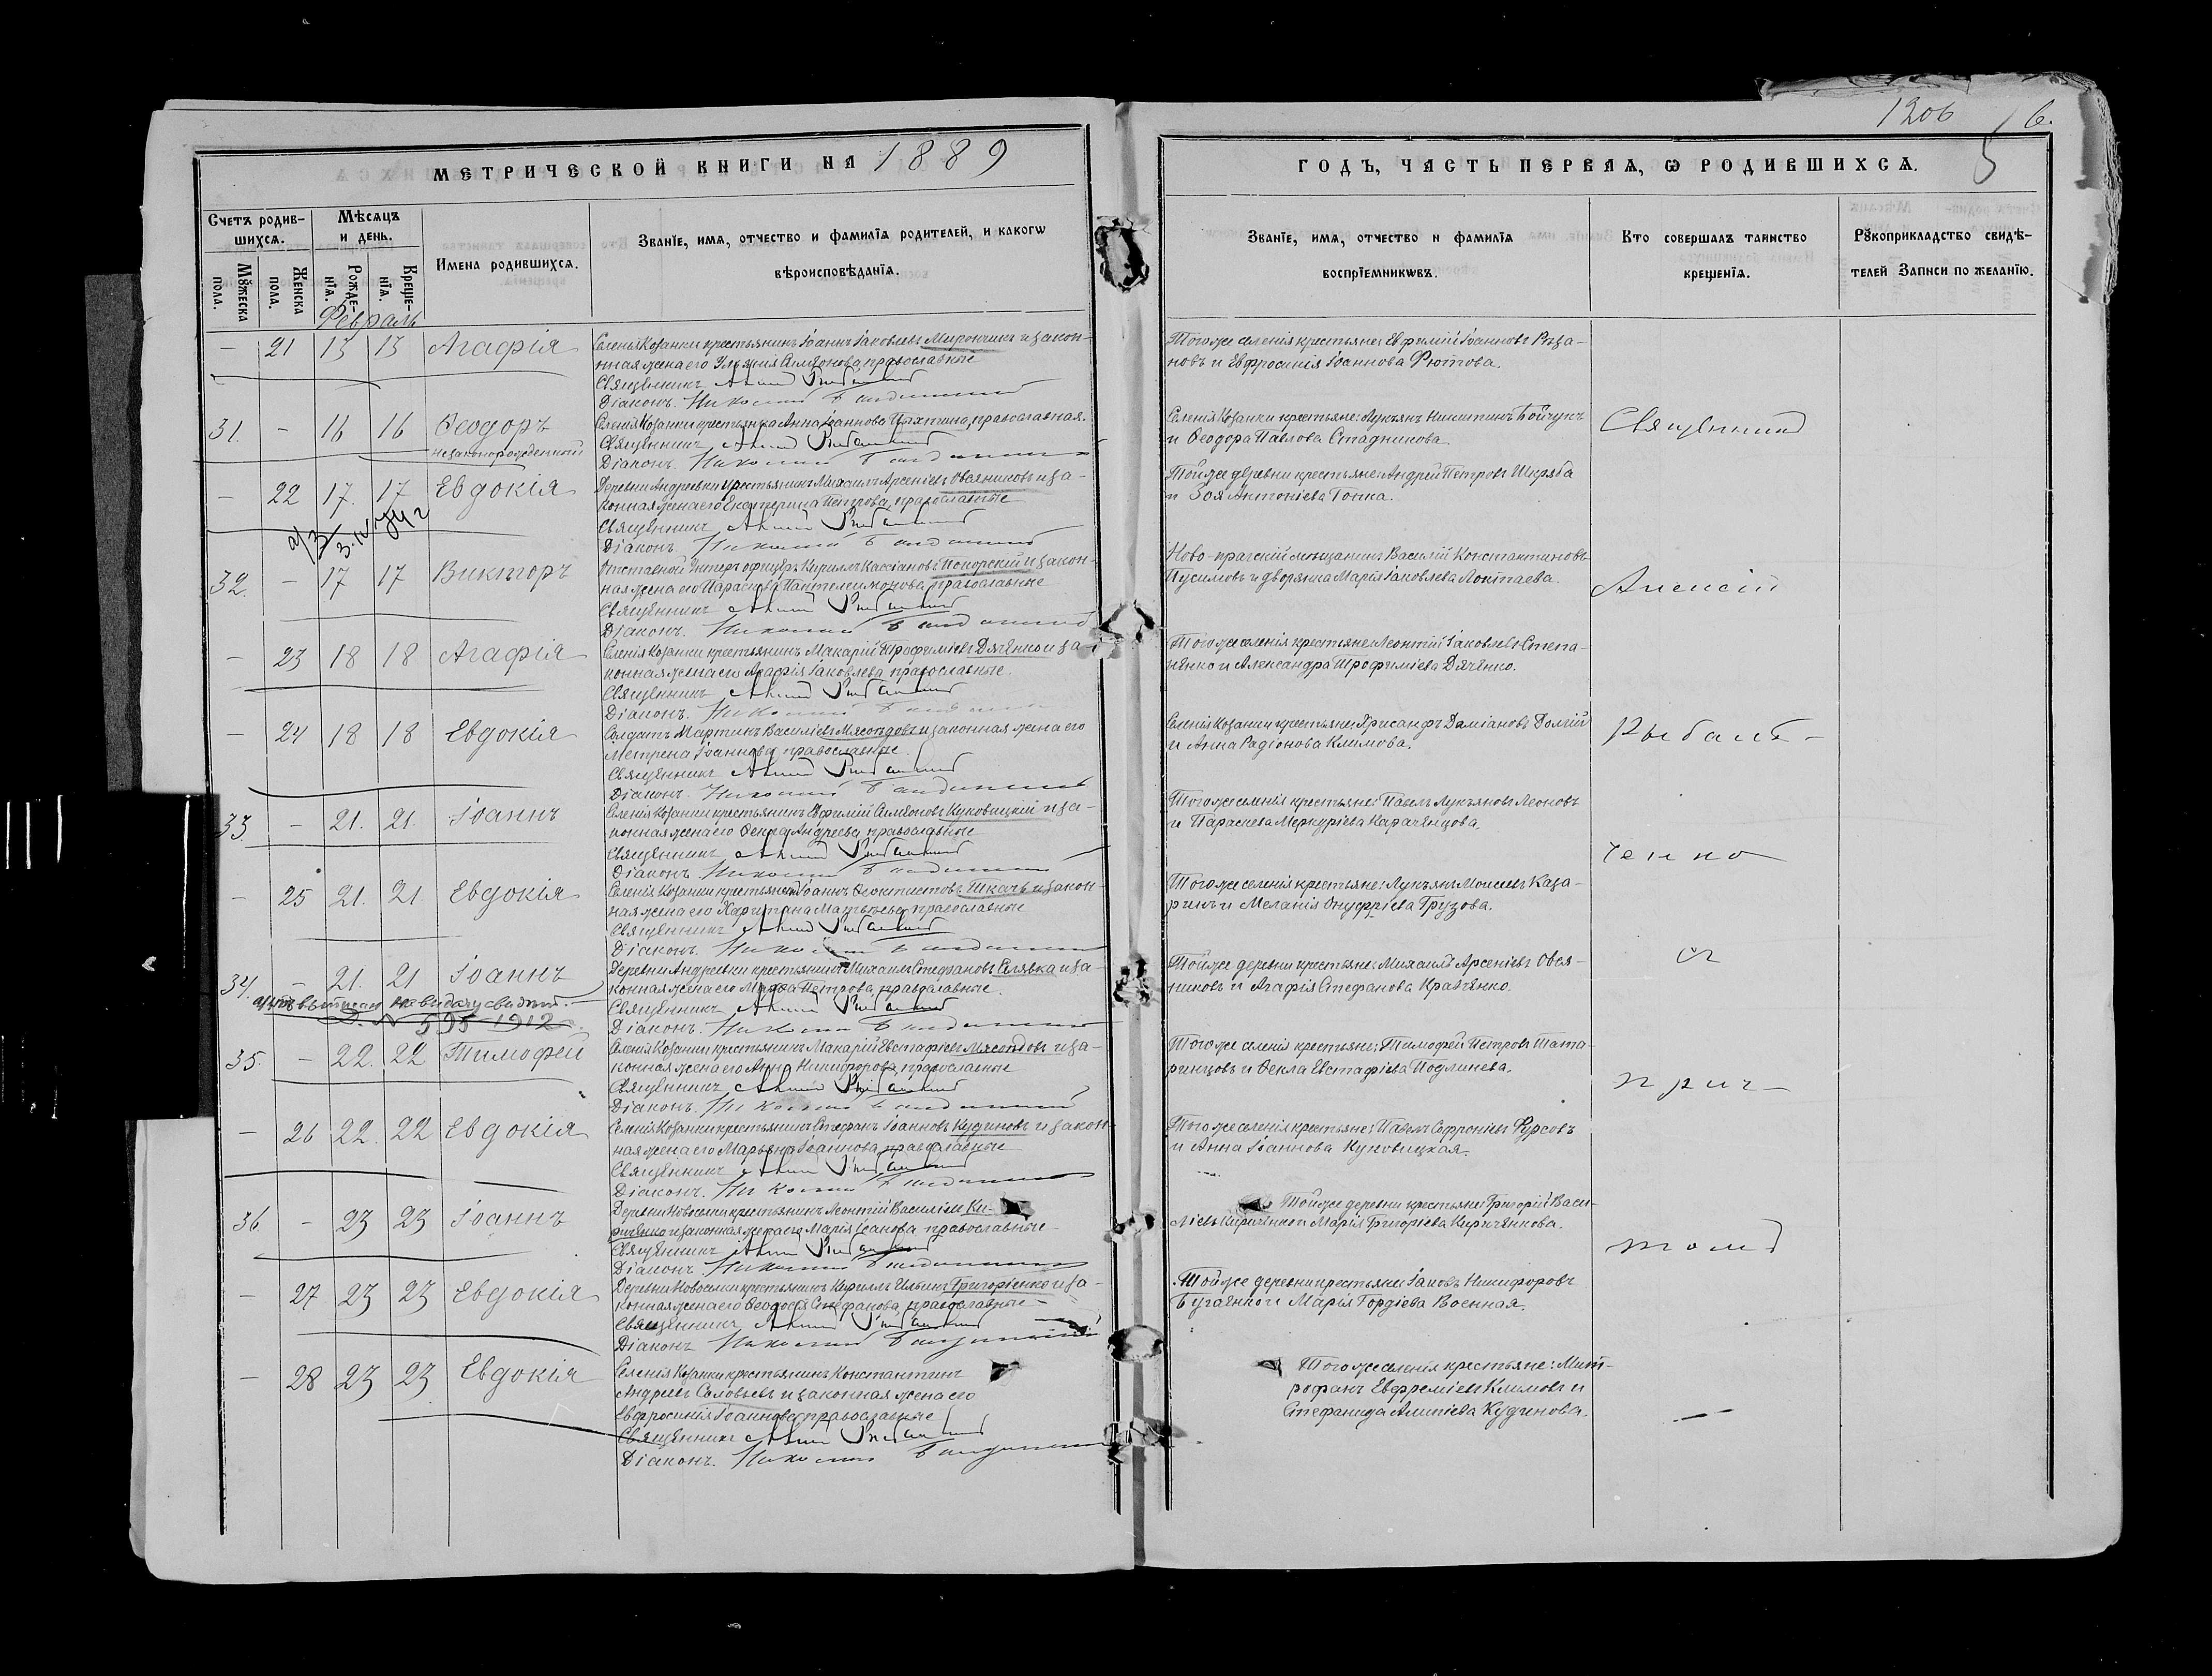 1206
6.
5
МЕТРИЧЕСКОЙ КНИГИ НА 1889
ГОДЪ, ЧАСТЬ ПЕРВАЯ, Ѡ РОДИВШИХСѦ.
Счетъ родившихсѧ.
Мѣсяцъ и день.
Мꙋжеска пола.
Женска пола.
Рожденїя.
Крещенїя.
Имена родившихсѧ.
Званїе, имѧ, отчество и фамилїѧ родителей, и какогѡ
вѣроисповѣданїѧ.
Званїе, имѧ, отчество и фамилїѧ
воспрїемникѡвъ.
Кто совершалъ таинство
крещенїѧ.
Рꙋкоприкладство свидѣ-
телей записи по желанїю.
Февраль
— 21 13 13 Агафія
Селенія Козанки крестьянинъ Іоаннъ Іаковлевъ Мирончикъ и закон-
ная жена его Ульянія Симеонова, православные
Священникъ
Діаконъ. Николай
Тогоже селенія крестьяне: Евфимій Іоанновъ Ряза-
новъ и Евфросинія Іоаннова Фютова.
31. — 16 16 Ѳеодоръ
незаконорожденный
Селенія Козанки крестьянка Анна Іоаннова, православная.
Священникъ
Діаконъ. Николай
Селенія Козанки крестьяне: Лукьянъ Никитинъ Бойчукъ
и Ѳеодора Павлова Стадникова.
Священникъ
— 22 17. 17 Евдокія
Деревни Андреевки крестьянинъ Михаилъ Арсеніевъ Овсяниковъ и за-
конная жена его Екатерина Петрова, православные
Священникъ
Діаконъ. Николай
Тойже деревни крестьяне: Андрей Петровъ Шкряба
и Зоя Антоніева Гонка.
32. — 17 17 Викторъ
Отставной Унтеръ офицеръ Кирилъ Кассіановъ и закон-
ная жена его Параскева Пантелеимонова, православные
Священникъ
Діаконъ. Николай
Ново-прагскій мѣщанинъ Василій Константиновъ
Пусимовъ и дворянка Марія Іаковлева Локтаева.
Алексій
— 23 18 18 Агафія
Селенія Козанки крестьянинъ Макарій Трофиміевъ Дяченко и за-
конная жена его Агафія Іаковлева православные.
Священникъ
Діаконъ. Николай
Тогоже селенія крестьяне: Леонтій Іаковлевъ Степа-
ненко и Александра Трофиміева Дяченко.
— 24 18 18 Евдокія
Солдатъ Мартинъ Василіевъ Мясоѣдовъ и законная жена его
Матрена Іоаннова православные.
Священникъ
Діаконъ. Николай
Селенія Козанки крестьяне: Хрисанфъ Даміановъ Долгій
и Анна Радіонова Климова.
Рыбаль-
33. — 21. 21. Іоаннъ
Селенія Козанки крестьянинъ Евфимій Симеоновъ Куковицкій и за-
конная жена его Ѳекла Андреева православные
Священникъ
Діаконъ Николай
Тогоже селенія крестьяне: Павелъ Лукьяновъ Леоновъ
и Параскева Меркуріева Караченцова.
ченко
— 25 21. 21 Евдокія
Селенія Козанки крестьянинъ Іоаннъ Ѳеоктистовъ Шкачъ и закон-
ная жена его Харитина Матѳеева православные
Священникъ
Діаконъ. Николай
Тогоже селенія крестьяне: Лукьянъ Моисеевъ Каза-
ринъ и Меланія Онуфріева Грузова.
34. — 21. 21 Іоаннъ
Деревни Андреевки крестьянинъ Михаилъ Стефановъ Селявка и за-
конная жена его Марфа Петрова, православные.
Священникъ
Діаконъ. Николай
Тойже деревни крестьяне: Михаилъ Арсеніевъ Овся-
никовъ и Агафія Стефанова Кравченко.
съ
№ 595 1912
35. — 22. 22 Тимофей
Селенія Козанки крестьянинъ Макарій Евстафіевъ Мясоѣдовъ и за-
конная жена его Анна Никифорова, православные
Священникъ
Діаконъ. Николай
Тогоже селенія крестьяне: Тимофей Петровъ Тата-
ринцовъ и Ѳекла Евстафіева Подлинева.
прич-
— 26 22. 22 Евдокія
Селенія Козанки крестьянинъ Стефанъ Іоанновъ Кудиновъ и закон-
ная жена его Марья Іоаннова, православные
Священникъ
Діаконъ. Николай
Тогоже селенія крестьяне: Павелъ Софроніевъ Фурсовъ
и Анна Іоаннова Куковицкая.
36 — 23 23 Іоаннъ
Деревни Новоселки крестьянинъ Леонтій Василіевъ Ки-
риченко и законная жена его Марія Исаакова православные
Священникъ
Діаконъ. Николай
Тойже деревни крестьяне: Григорій Васи-
ліевъ Кириченко и Марія Григоріева Кириченкова.
томъ
— 27 23 23 Евдокія
Деревни Новоселки крестьянинъ Кирилъ Ильинъ Григоріенко и за-
конная жена его Ѳеодосія Стефанова, православные
Священникъ
Діаконъ Николай
Тойже деревни крестьяне: Іаковъ Никифоровъ
Бугаенко и Марія Гордіева Военная.
— 28 23 23 Евдокія
Селенія Козанки крестьянинъ Константинъ
Андреевъ Соловьевъ и законная жена его
Евфросинія Іоаннова православные
Священникъ
Діаконъ. Николай
Тогоже селенія крестьяне: Мит-
рофанъ Евфреміевъ Климовъ и
Стефанида Алипіева Кудинова.